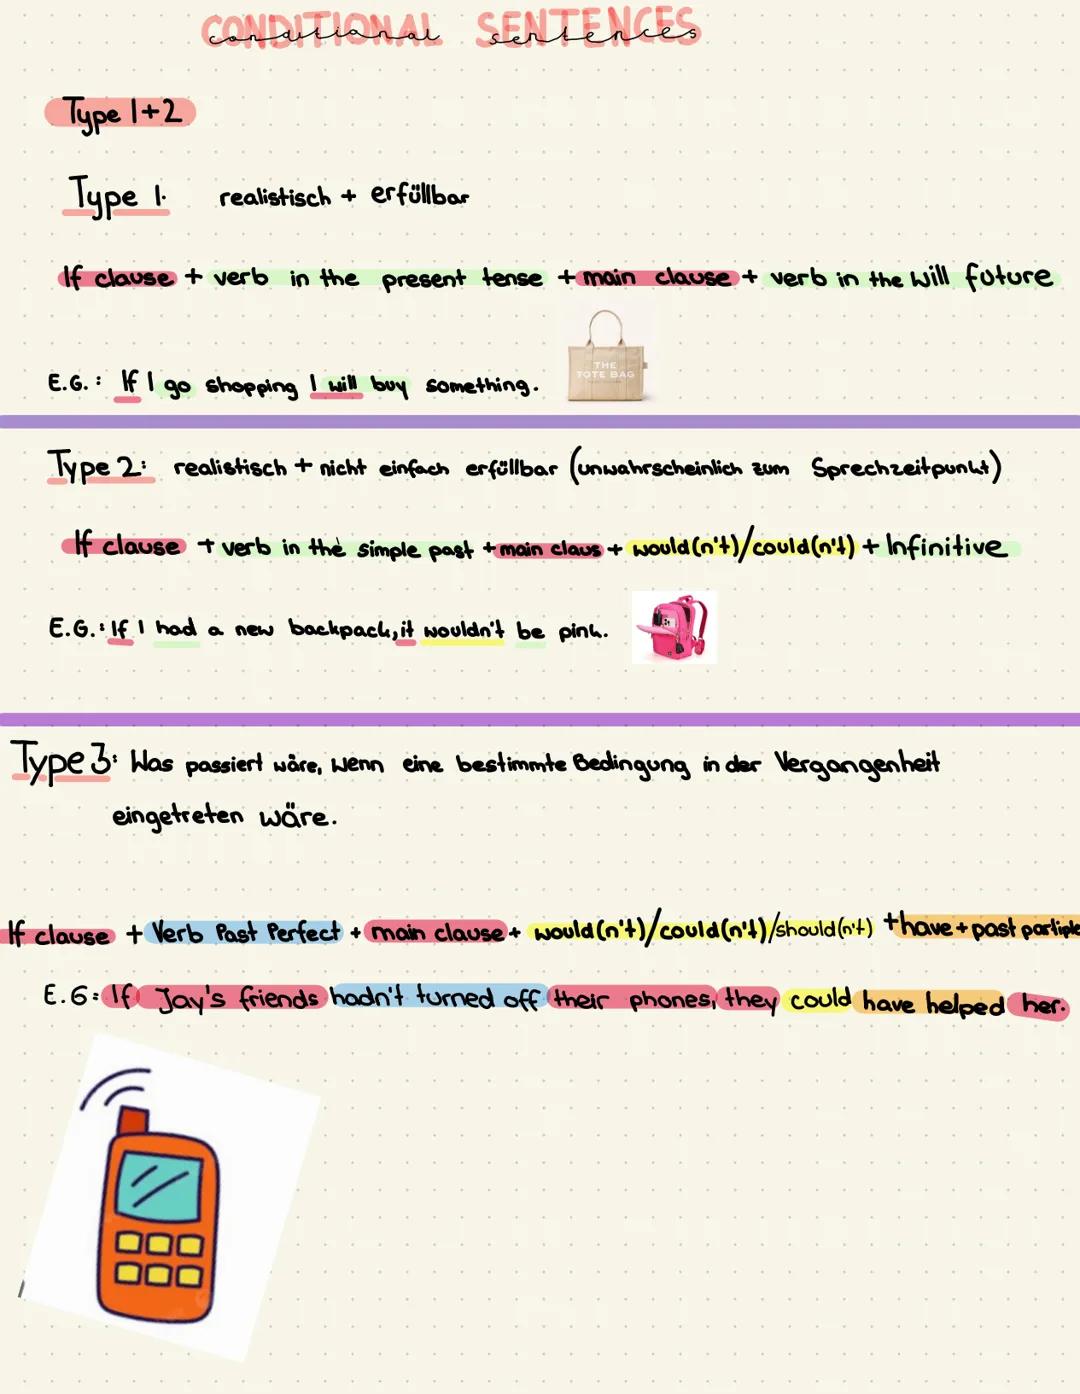 CONDITIONAL SENTENCES
conditional sentences
Type 1+2
Type 1. realistisch + erfüllbar
If clause + verb in the present tense + main clause + verb in the will future
THE
TOTE BAG
E.G.: If I go shopping I will buy something.
Type 2: realistisch + nicht einfach erfüllbar (unwahrscheinlich zum Sprechzeitpunkt)
If clause + verb in the simple past + main claus + would(n't)/could(n't) + Infinitive
E.G.: If I had a new backpack, it wouldn't be pink.
Type 3: Was passiert wäre, wenn eine bestimmte Bedingung in der Vergangenheit
eingetreten wäre.
If clause + Verb Past Perfect + main clause + would(n't)/could(n't)/should(n't) + have + past partiple
E.G: If Jay's friends hadn't turned off their phones, they could have helped her.